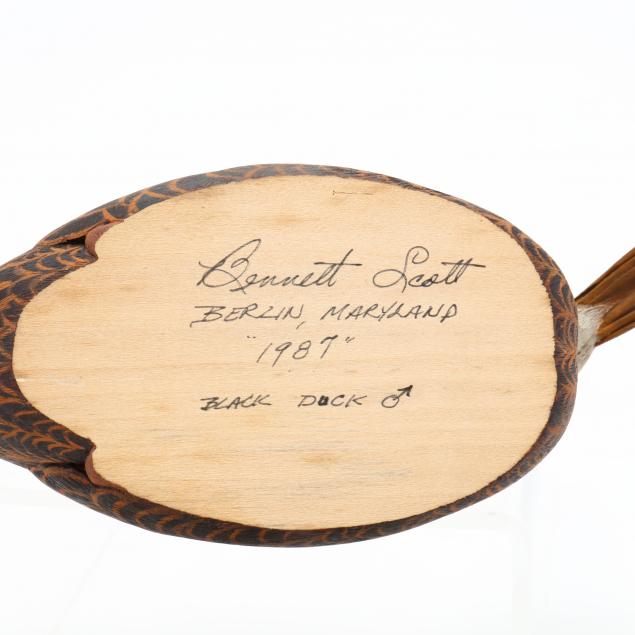 Bennett Scott
BERLIN, MARYLAND
"1987"
BLACK DUCK ♂